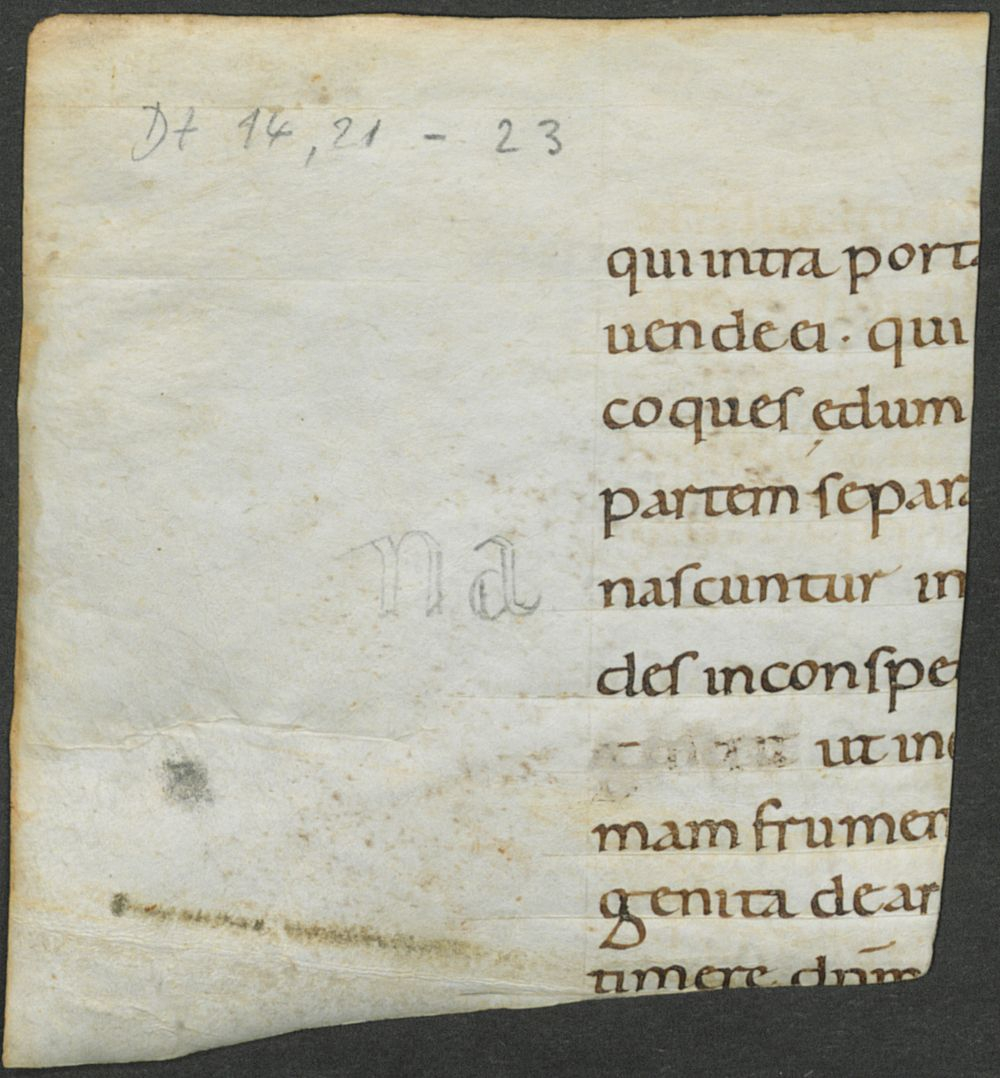 Dt 14,21 - 23
qui intra porta
uende ei · qui
coques ędum
partem separa
na
nascuntur in
des in conspe
ut in
mam frumen
genita de ar
timere dnm̄